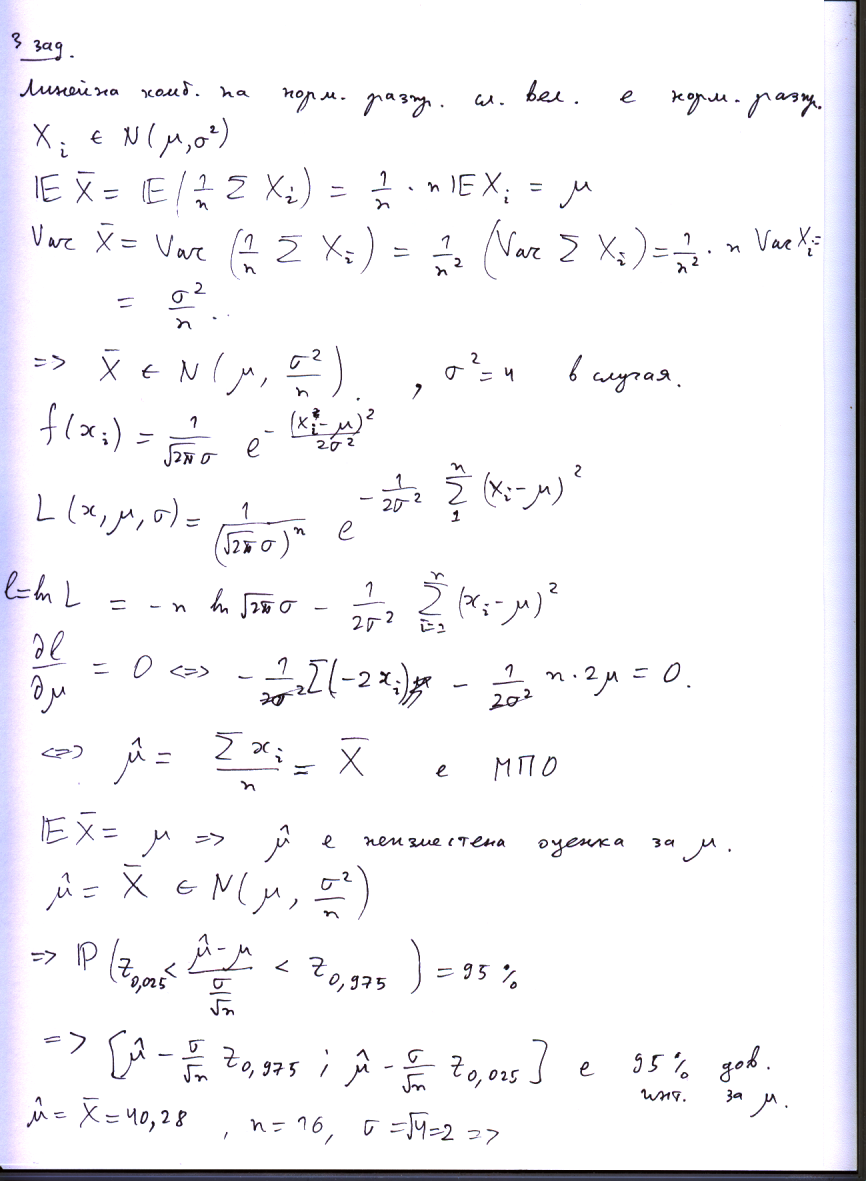 3 зад.
Линейна комб. на норм. разпр. сл. вел. е норм. разпр.
X_i ∈ N(μ,σ²)
𝔼X̄ = 𝔼(1/n Σ X_i) = 1/n · n𝔼X_i = μ
Var X̄ = Var (1/n Σ X_i) = 1/n² (Var Σ X_i) = 1/n² · n Var X_i =
= σ²/n.
=> X̄ ∈ N(μ, σ²/n). , σ²=4 в случая.
f(x_i) = 1/(√2π σ) e^(-(x_i-μ)²/2σ²)
L(x,μ,σ) = 1/(√2π σ)^n e^(-1/2σ² Σ_1^n (x_i-μ)²)
l=ln L = -n ln √2π σ - 1/2σ² Σ_{i=1}^n (x_i-μ)²
∂l/∂μ = 0 <=> -1/2σ² Σ(-2x_i) - 1/2σ² n·2μ = 0.
<=> μ̂ = Σx_i/n = X̄ е МПО
𝔼X̄ = μ => μ̂ е неизместена оценка за μ.
μ̂ = X̄ ∈ N(μ, σ²/n)
=> ℙ(z_0,025 < (μ̂-μ)/(σ/√n) < z_0,975) = 95%
=> [μ̂ - σ/√n z_0,975 ; μ̂ - σ/√n z_0,025] е 95% дов.
инт. за μ.
μ̂ = X̄ = 40,28 , n = 16, σ = √4 = 2 =>